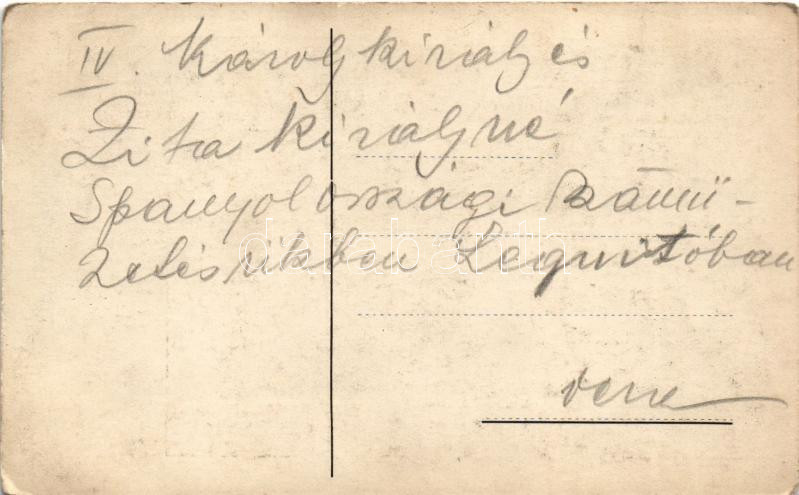 IV. Károly király és
Zita királyné
Spanyolországi Számü-
zetésükben Lequitóban
darabanth